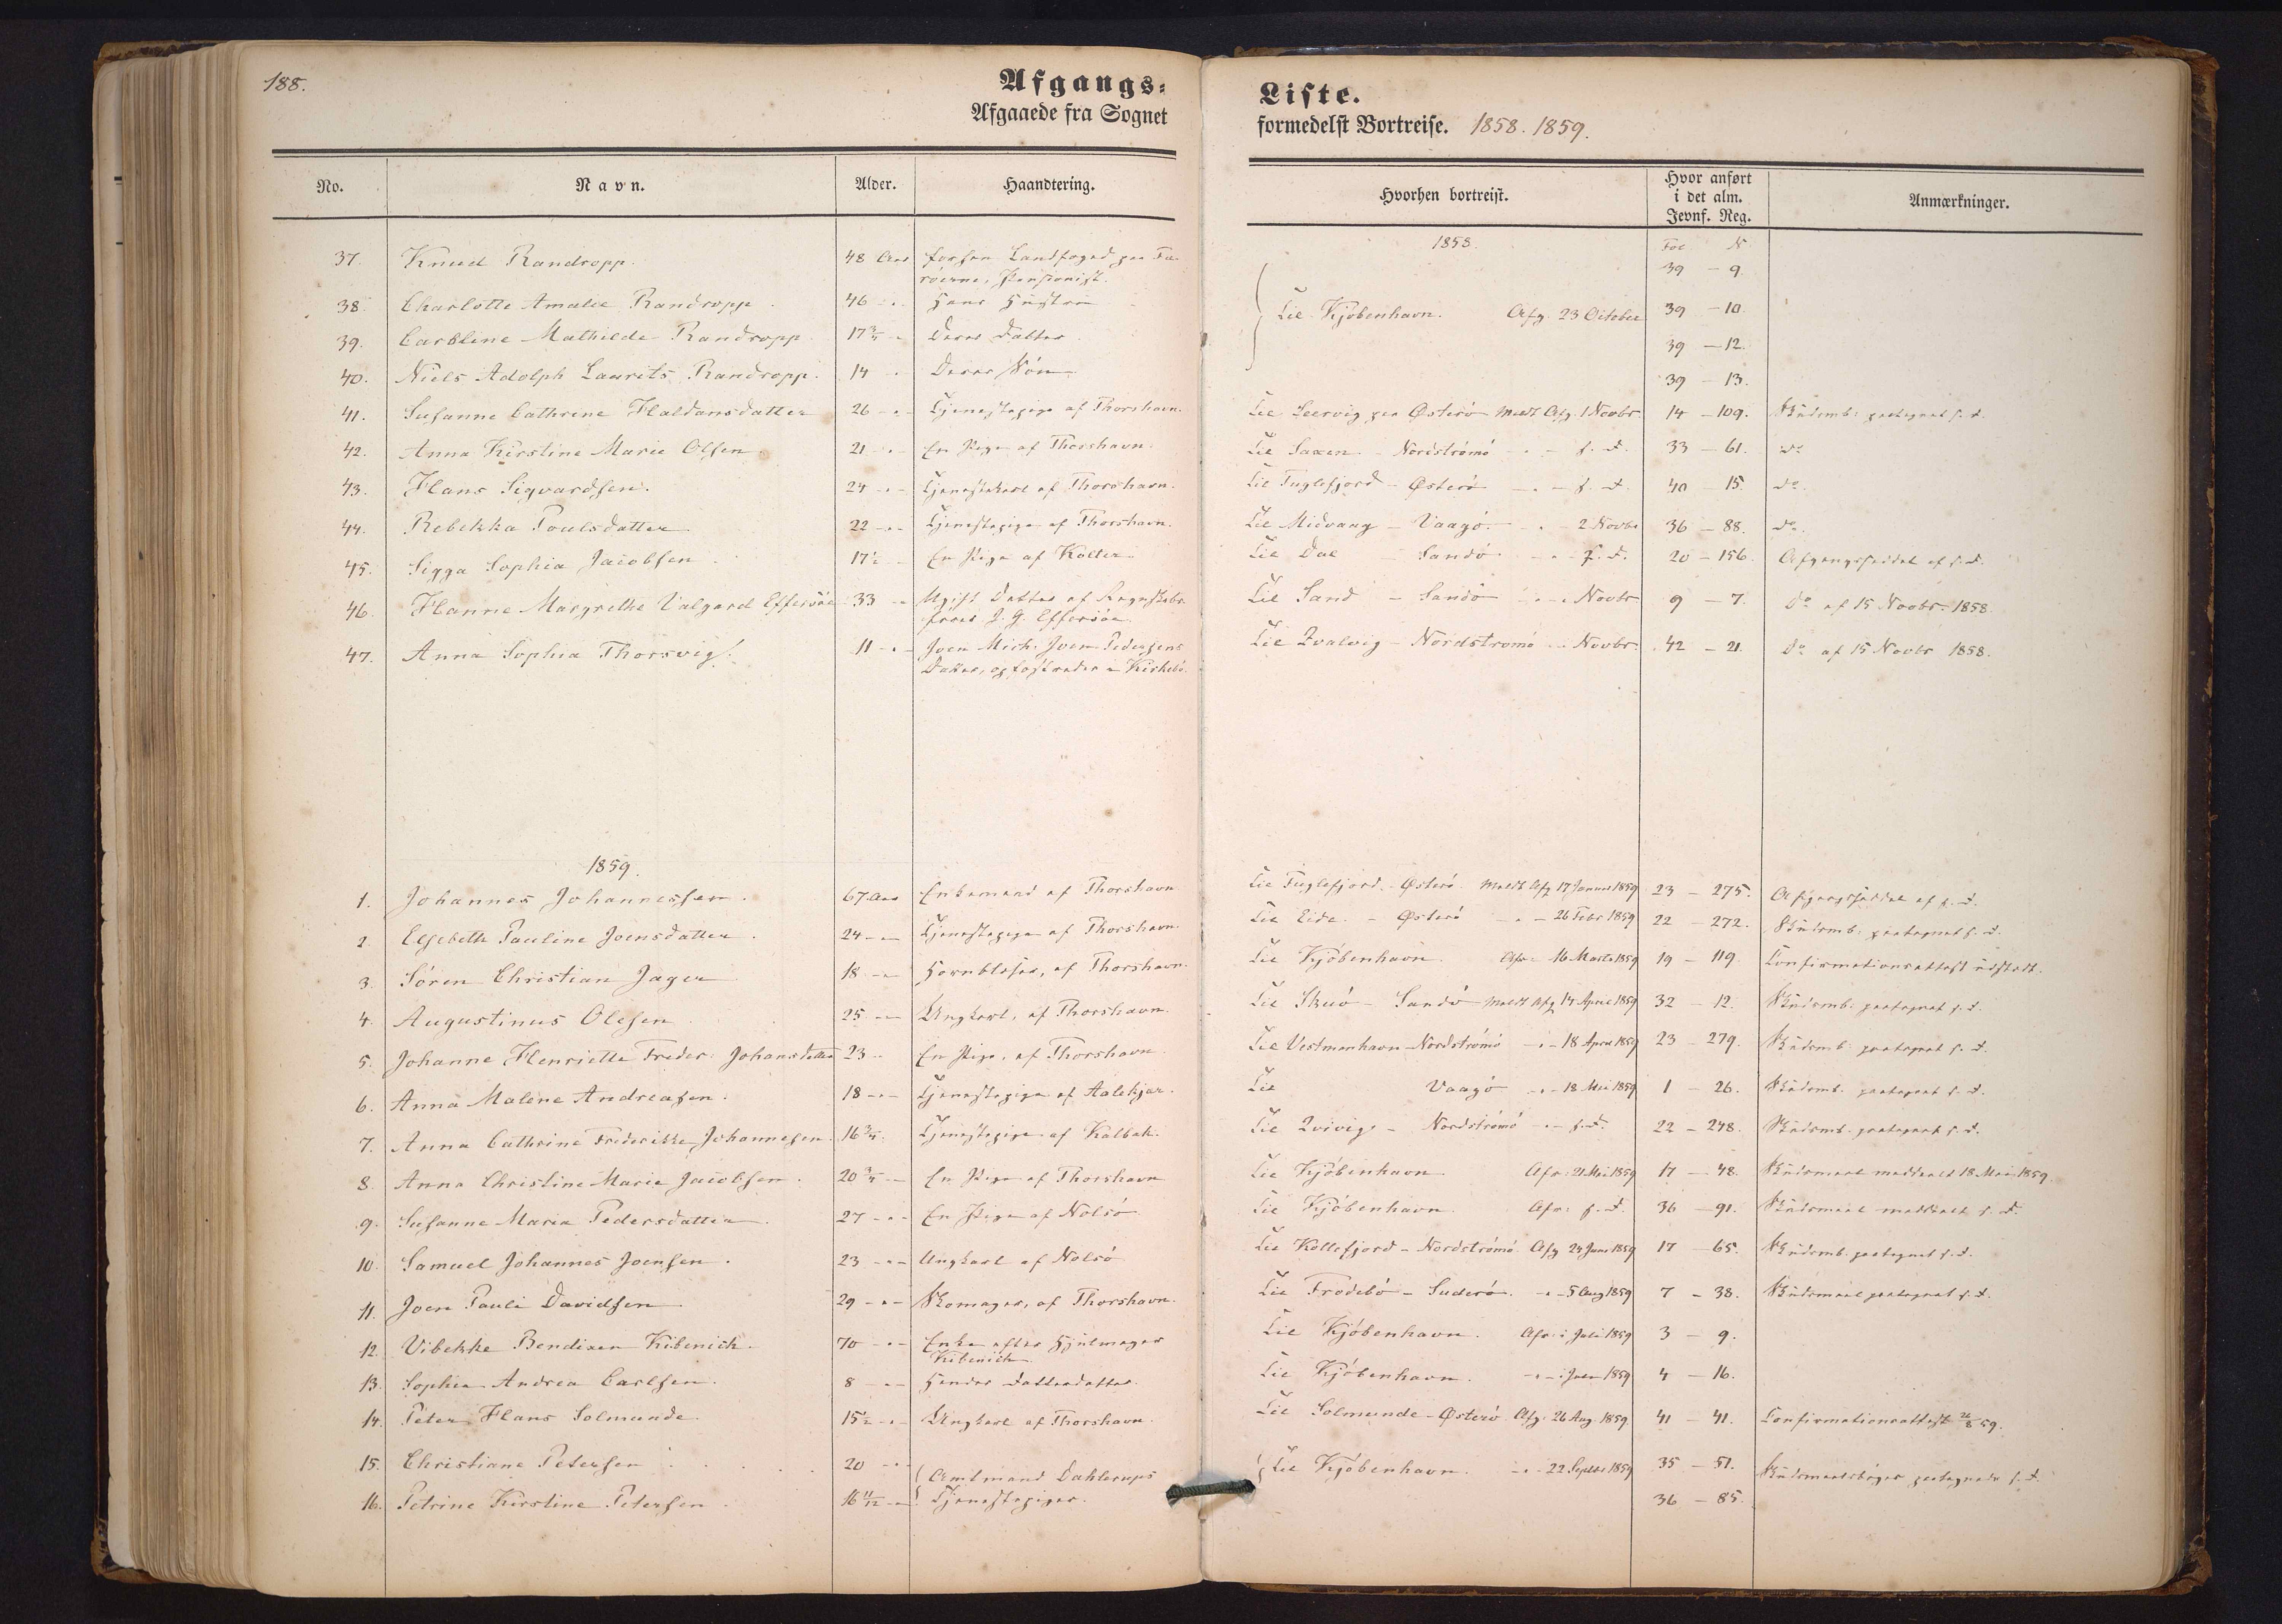 188.
Afgangs-
Afgaaede fra Sognet
Liste.
formedelst Bortreise. 1858. 1859.
No. Navn. Alder. Haandtering. Hvorhen bortreist. Hvor anført i det alm. Jevnf. Reg. Anmærkninger.
1858. Fol N
37. Knud Randropp. 48 Aar forhen Landfoged paa Fæ- 39 - 9.
röerne, Pensionist.
38. Charlotte Amalie Randropp 46 - " - Hans Hustru Til Kjöbenhavn. Afg. 23 October 39 - 10.
39. Caroline Mathilde Randropp 17 3/4 - Deres Datter. 39 - 12.
40. Niels Adolph Laurits Randropp. 14 - Deres Sön 39 - 13.
41. Susanne Cathrine Haldansdatter 26 - " - Tjenestepige af Thorshavn. Til Leervig paa Österö Meldt Afg. 1 Novbr 14 - 109. Skudsmb. paategnet s. D.
42. Anna Kirstine Marie Olsen 21 - " - En Pige af Thorshavn. Til Saxen - Nordströmö - " - s. D. 33 - 61. Do
43. Hans Sigvardsen. 24 - " - Tjenestekarl af Thorshavn. Til Fuglefjord - Österö - " - s. D. 40 - 15. Do.
44. Rebekka Poulsdatter 22 - " - Tjenestepige af Thorshavn. Til Midvaag - Vaagö - " - 2 Novbr 36 - 88. Do.
45. Sigga Sophia Jacobsen 17 1/2 - En Pige af Kolter Til Dal - Sandö - " - s. D. 20 - 156. Afgangsseddel af s. D.
46. Hanne Margrethe Valgerd Effersöe 33 - Ugift Datter af Regnskabs- Til Sand - Sandö - " - Novbr 9 - 7. Do af 15 Novbr. 1858.
förer J. G. Effersöe.
47. Anna Sophia Thorsvig! 11 - " - Joen Mich. Joen Pedersens Til Qvalvig - Nordströmö - " - Novbr. 42 - 21. Do af 15 Novbr 1858.
Datter, opfostredes i Kirkebö.
1859.
1. Johannes Johannessen. 67 Aar Enkemand af Thorshavn Til Fuglefjord - Österö Meldt Afg 17 Januar 1859 23 - 275. Afgangsseddel af s. D.
2. Elsebeth Pauline Joensdatter. 24 - " - Tjenestepige af Thorshavn. Til Eide. - Österö - " - 26 Febr 1859 22 - 272. Skudsmb. paategnet s. D.
3. Sören Christian Jager 18 - " - Hornblæser, af Thorshavn. Til Kjöbenhavn. Afr. 16 Marts 1859 19 - 119. Confirmationsattest udstedt.
4. Augustinus Olesen 25 - " - Ungkarl, af Thorshavn. Til Skuö - Sandö Meldt Afg 14 April 1859 32 - 12. Skudsmb. paategnet s. D.
5. Johanne Henriette Freder. Johansdatter 23 - En Pige, af Thorshavn. Til Vestmanhavn - Nordströmö - " - 18 April 1859 23 - 279. Skudsmb. paategnet s. D.
6. Anna Malene Andreasen. 18 - " - Tjenestepige af Aalekjær. Til Vaagö - " - 18 Mai 1859 1 - 26. Skudsmb. paategnet s. D.
7. Anna Cathrine Frederikke Johannesen. 16 3/4. Tjenestepige af Kalbak. Til Qvivig - Nordströmö - " - s. D. 22 - 248. Skudsmb. paategnet s. D.
8. Anna Christine Marie Jacobsen. 20 3/4 - En Pige af Thorshavn Til Kjöbenhavn Afr. 21 Mai 1859 17 - 48. Skudsmaal meddeelt 18 Mai 1859.
9. Susanne Maria Pedersdatter. 27 - " - En Pige af Nolsö Til Kjöbenhavn Afr. s. D. 36 - 91. Skudsmaal meddeelt s. D.
10. Samuel Johannes Joensen. 23 - " - Ungkarl af Nolsö Til Kollefjord - Nordströmö Afg 24 Juni 1859 17 - 65. Skudsmb. paategnet s. D.
11. Joen Pauli Davidsen 29 - " - Skomager, af Thorshavn. Til Frodebö - Suderö. - " - 5 Aug 1859 7 - 38. Skudsmaal paategnet s. D.
12. Vibekke Bendixen Kibenich. 70 - " - Enke efter Hjulmager Til Kjöbenhavn. Afr. i Juli 1859 3 - 9.
Kibenich
13. Sophia Andrea Carlsen. 8 - " - Hendes Datterdatter. Til Kjöbenhavn. - " - i 1859 4 - 16.
14. Peter Hans Solmunde. 15 1/2 - " - Ungkarl af Thorshavn. Til Solmunde - Österö Afg. 26 Aug. 1859 41 - 41. Confirmationsattest 26/8 59.
15. Christiane Petersen 20 - " - Amtmand Dahlerups Til Kjöbenhavn. - " - 22 Septbr 1859 35 - 51. Skudsmaalsböger paategnede s. D.
16. Petrine Kirstine Petersen 16 11/12 - " - Tjenestepiger. 36 - 85.